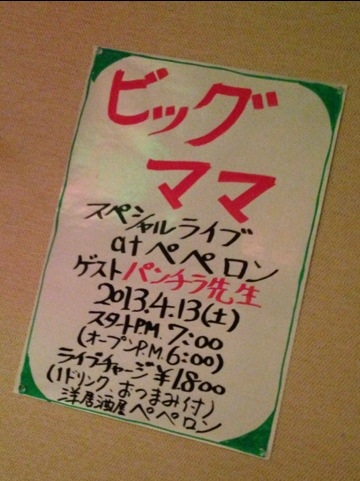 ビッグ
ママ
スペシャルライブ
at ペペロン
ゲスト パンチラ先生
2013.4.13(土)
スタートP.M. 7:00
(オープンP.M. 6:00)
ライブチャージ ¥1800
(1ドリンク、おつまみ付)
洋居酒屋 ペペロン